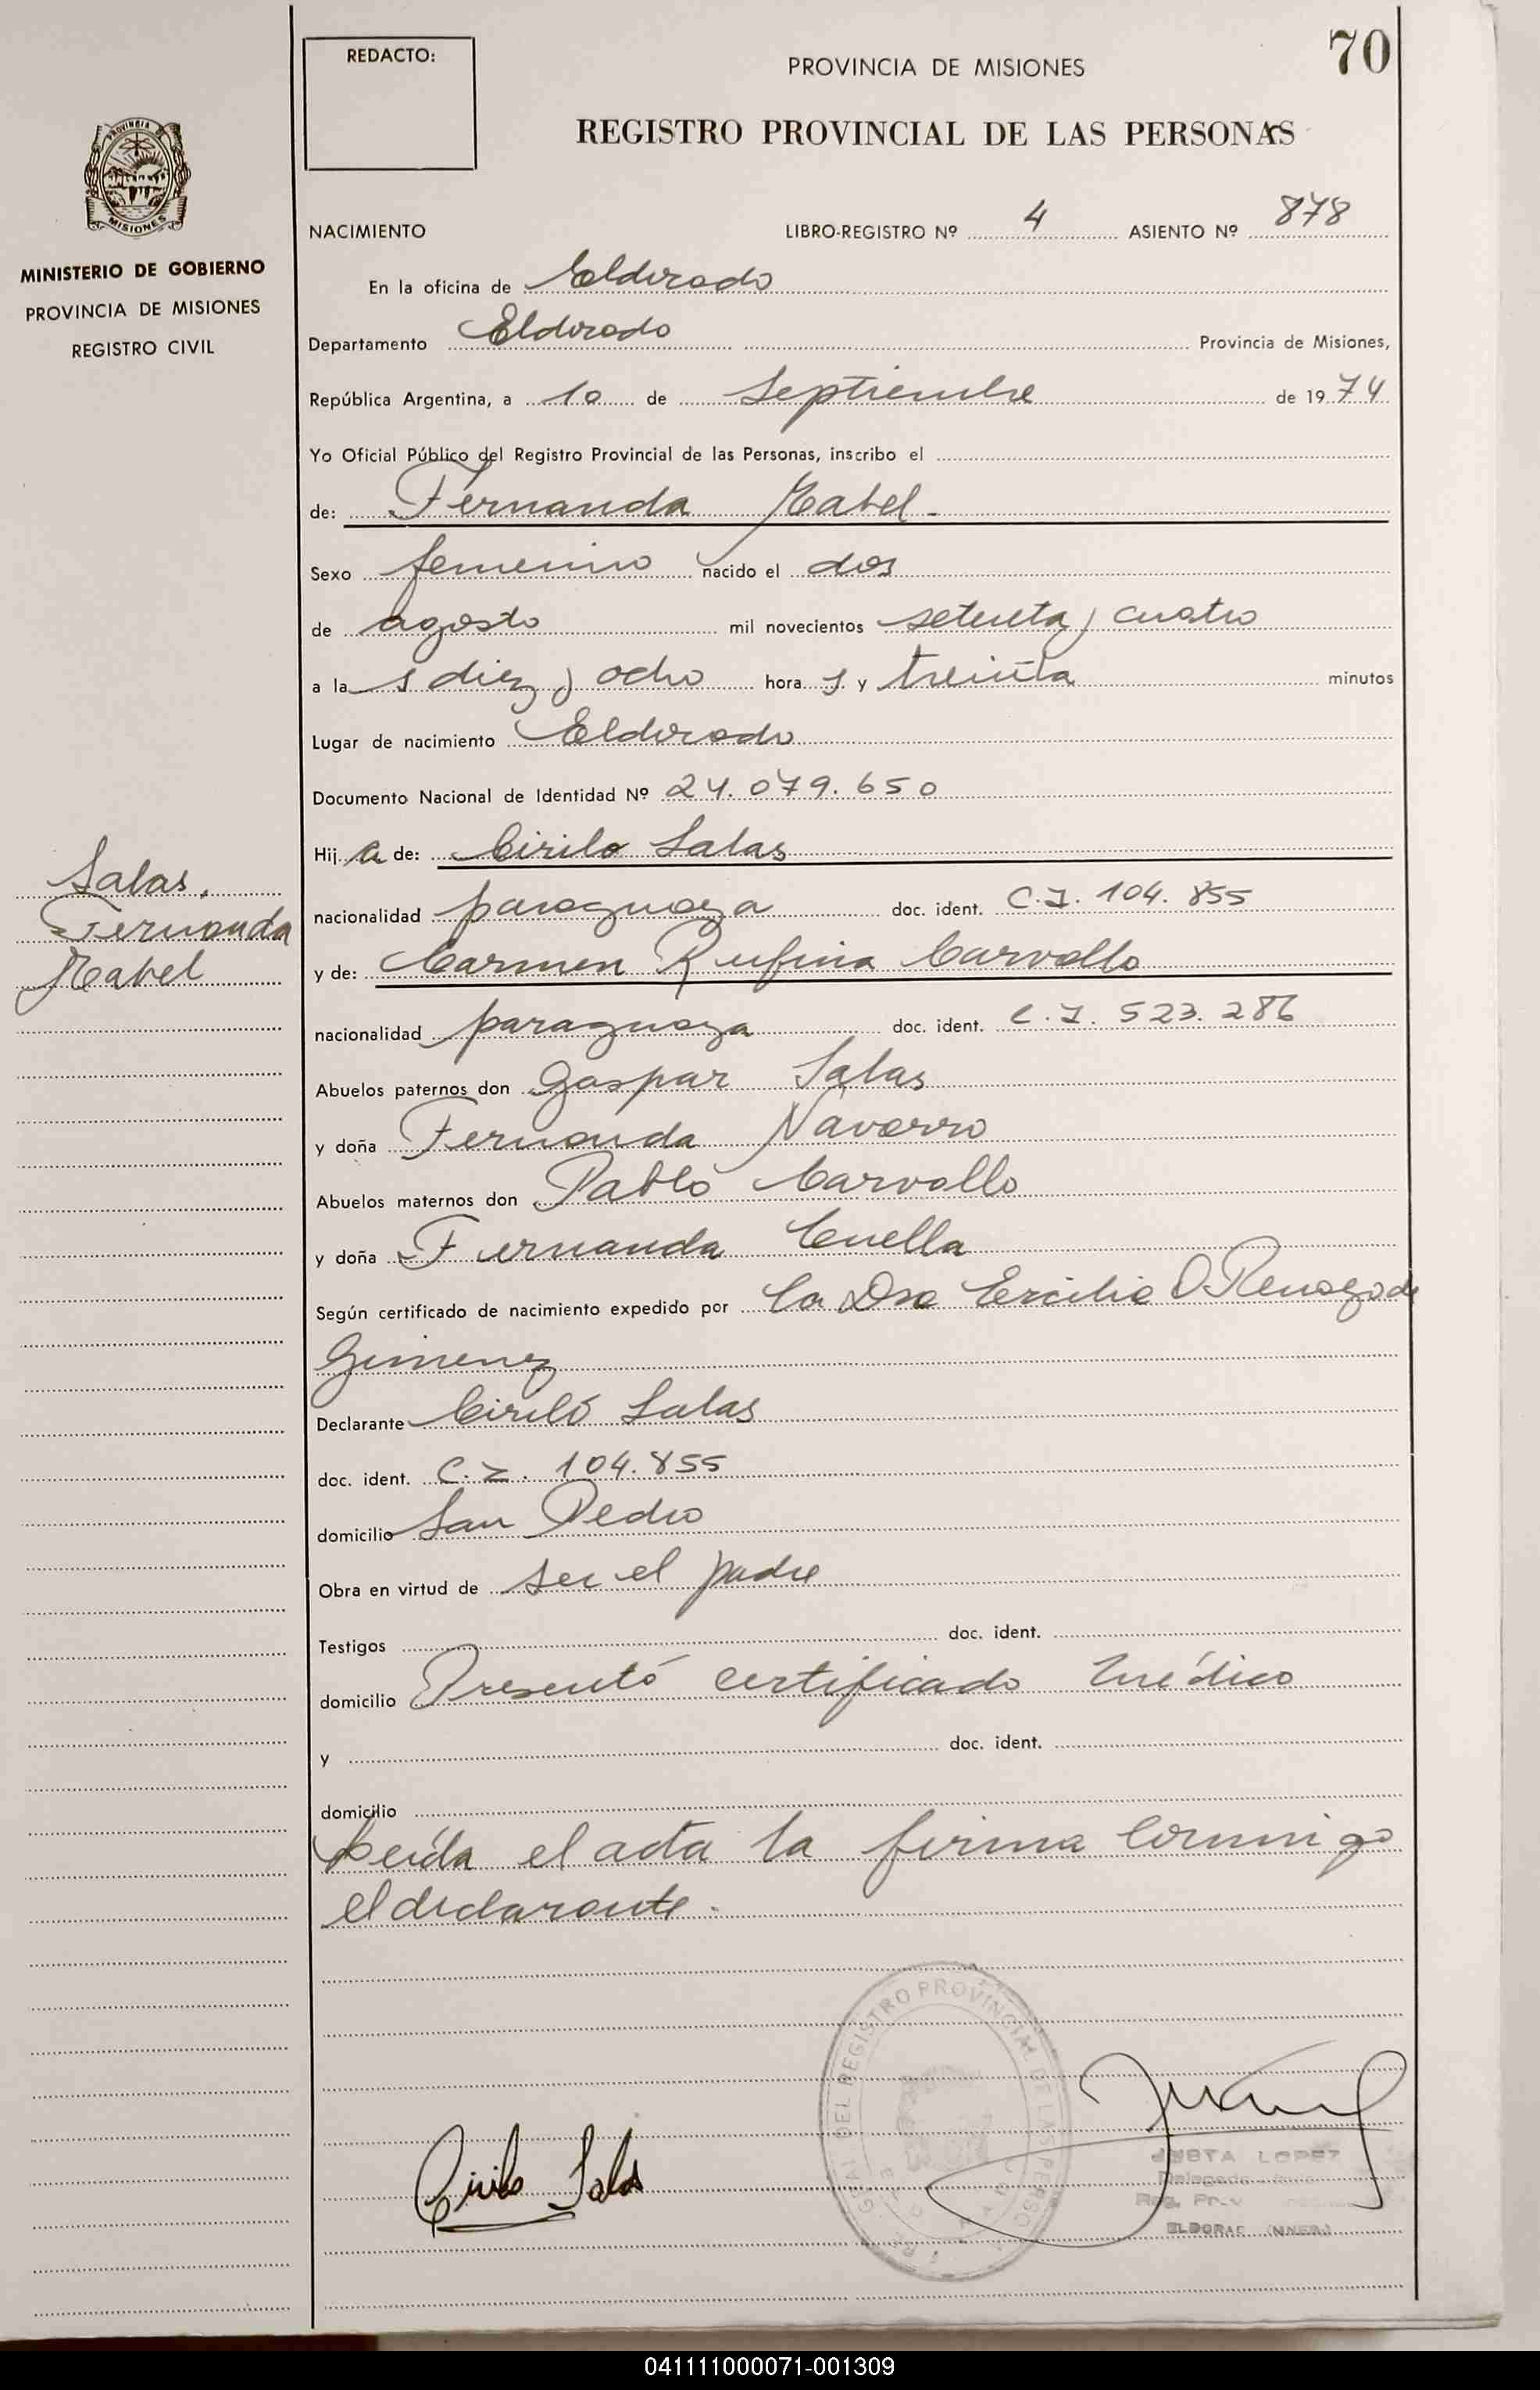 70
REDACTO:
PROVINCIA DE MISIONES
REGISTRO PROVINCIAL DE LAS PERSONAS
PROVINCIA
MISIONES
MINISTERIO DE GOBIERNO
PROVINCIA DE MISIONES
REGISTRO CIVIL
NACIMIENTO LIBRO-REGISTRO Nº 4 ASIENTO Nº 878
En la oficina de Eldorado
Departamento Eldorado Provincia de Misiones,
República Argentina, a 10 de Septiembre de 1974
Yo Oficial Público del Registro Provincial de las Personas, inscribo el
de: Fernanda Mabel -
Sexo femenino nacido el dos
de agosto mil novecientos setenta y cuatro
a las diez y ocho horas y treinta minutos
Lugar de nacimiento Eldorado
Documento Nacional de Identidad Nº 24.079.650
Hija de: Cirilo Salas
Salas,
Fernanda
Mabel
nacionalidad paraguaya doc. ident. C.I. 104.855
y de: Carmen Rufina Carvallo
nacionalidad paraguaya doc. ident. C.I. 523.286
Abuelos paternos don Gaspar Salas
y doña Fernanda Navarro
Abuelos maternos don Pablo Carvallo
y doña Fernanda Cuella
Según certificado de nacimiento expedido por La Dra Ercilia O. de
Gimenez
Declarante Cirilo Salas
doc. ident. C.I. 104.855
domicilio San Pedro
Obra en virtud de ser el padre
Testigos doc. ident.
domicilio Presentó certificado médico
y doc. ident.
domicilio
Leída el acta la firma conmigo
el declarante.
DEL REGISTRO PROVINCIAL DE LAS PERSO
Cirilo Salas
JUSTA LOPEZ
041111000071-001309